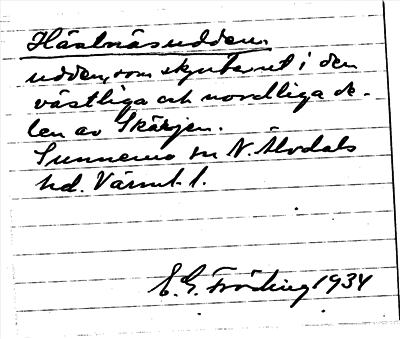 Hästnäsudden.
udden, som skjuter ut i den
västliga och nordliga de-
len av Skäkjen.
Sunnemo sn N. Älvdals
hd. Värml. l.
E. G. Fröding 1934